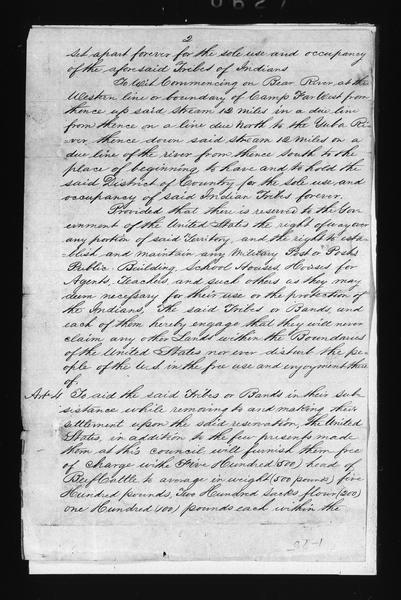 2
set apart forever for the sole use and occupancy
of the aforesaid Tribes of Indians
To Wit. Commencing on Bear River, at the
Western line or boundary of Camp Far West from
thence up said stream 12 miles in a due line
from thence on a line due north to the Yuba Ri-
ver thence down said stream 12 miles on a
due line of the river from thence South to the
place of beginning, to have and to hold the
said District of Country for the sole use and
occupancy of said Indian Tribes forever.
Provided that there is reserved to the Gov-
ernment of the United States the right of way over
any portion of said Territory, and the right to esta-
blish and maintain any Military Post or Posts
Public Building, School Houses, Houses for
Agents, Teachers, and such others as they may
deem necessary for their use or the protection of
the Indians, The said Tribes or Bands, and
each of them hereby engage that they will never
claim any other Lands within the Boundaries
of the United States nor ever disturb the pe-
ople of the U.S. in the free use and enjoyment there
of.
Art. 4 To aid the said Tribes or Bands in their sub-
sistance while removing to and making their
settlement upon the said reservation, The United
States, in addition to the few presents made
them at this council will furnish them free
of charge with Five Hundred (500) head of
Beef Cattle to average in weight (500 pounds) five
Hundred pounds, Two Hundred sacks flour (200)
one Hundred (100) pounds each within the